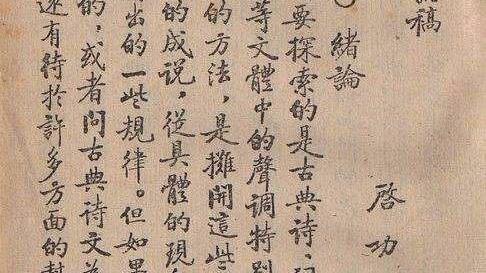 論稿
啓功
緒論
要探索的是古典詩、
等文體中的聲調特別
的方法，是攤開這些
的成說，從具體的現
出的一些規律。但如果
的，或者問古典詩文為
還有待於許多方面的